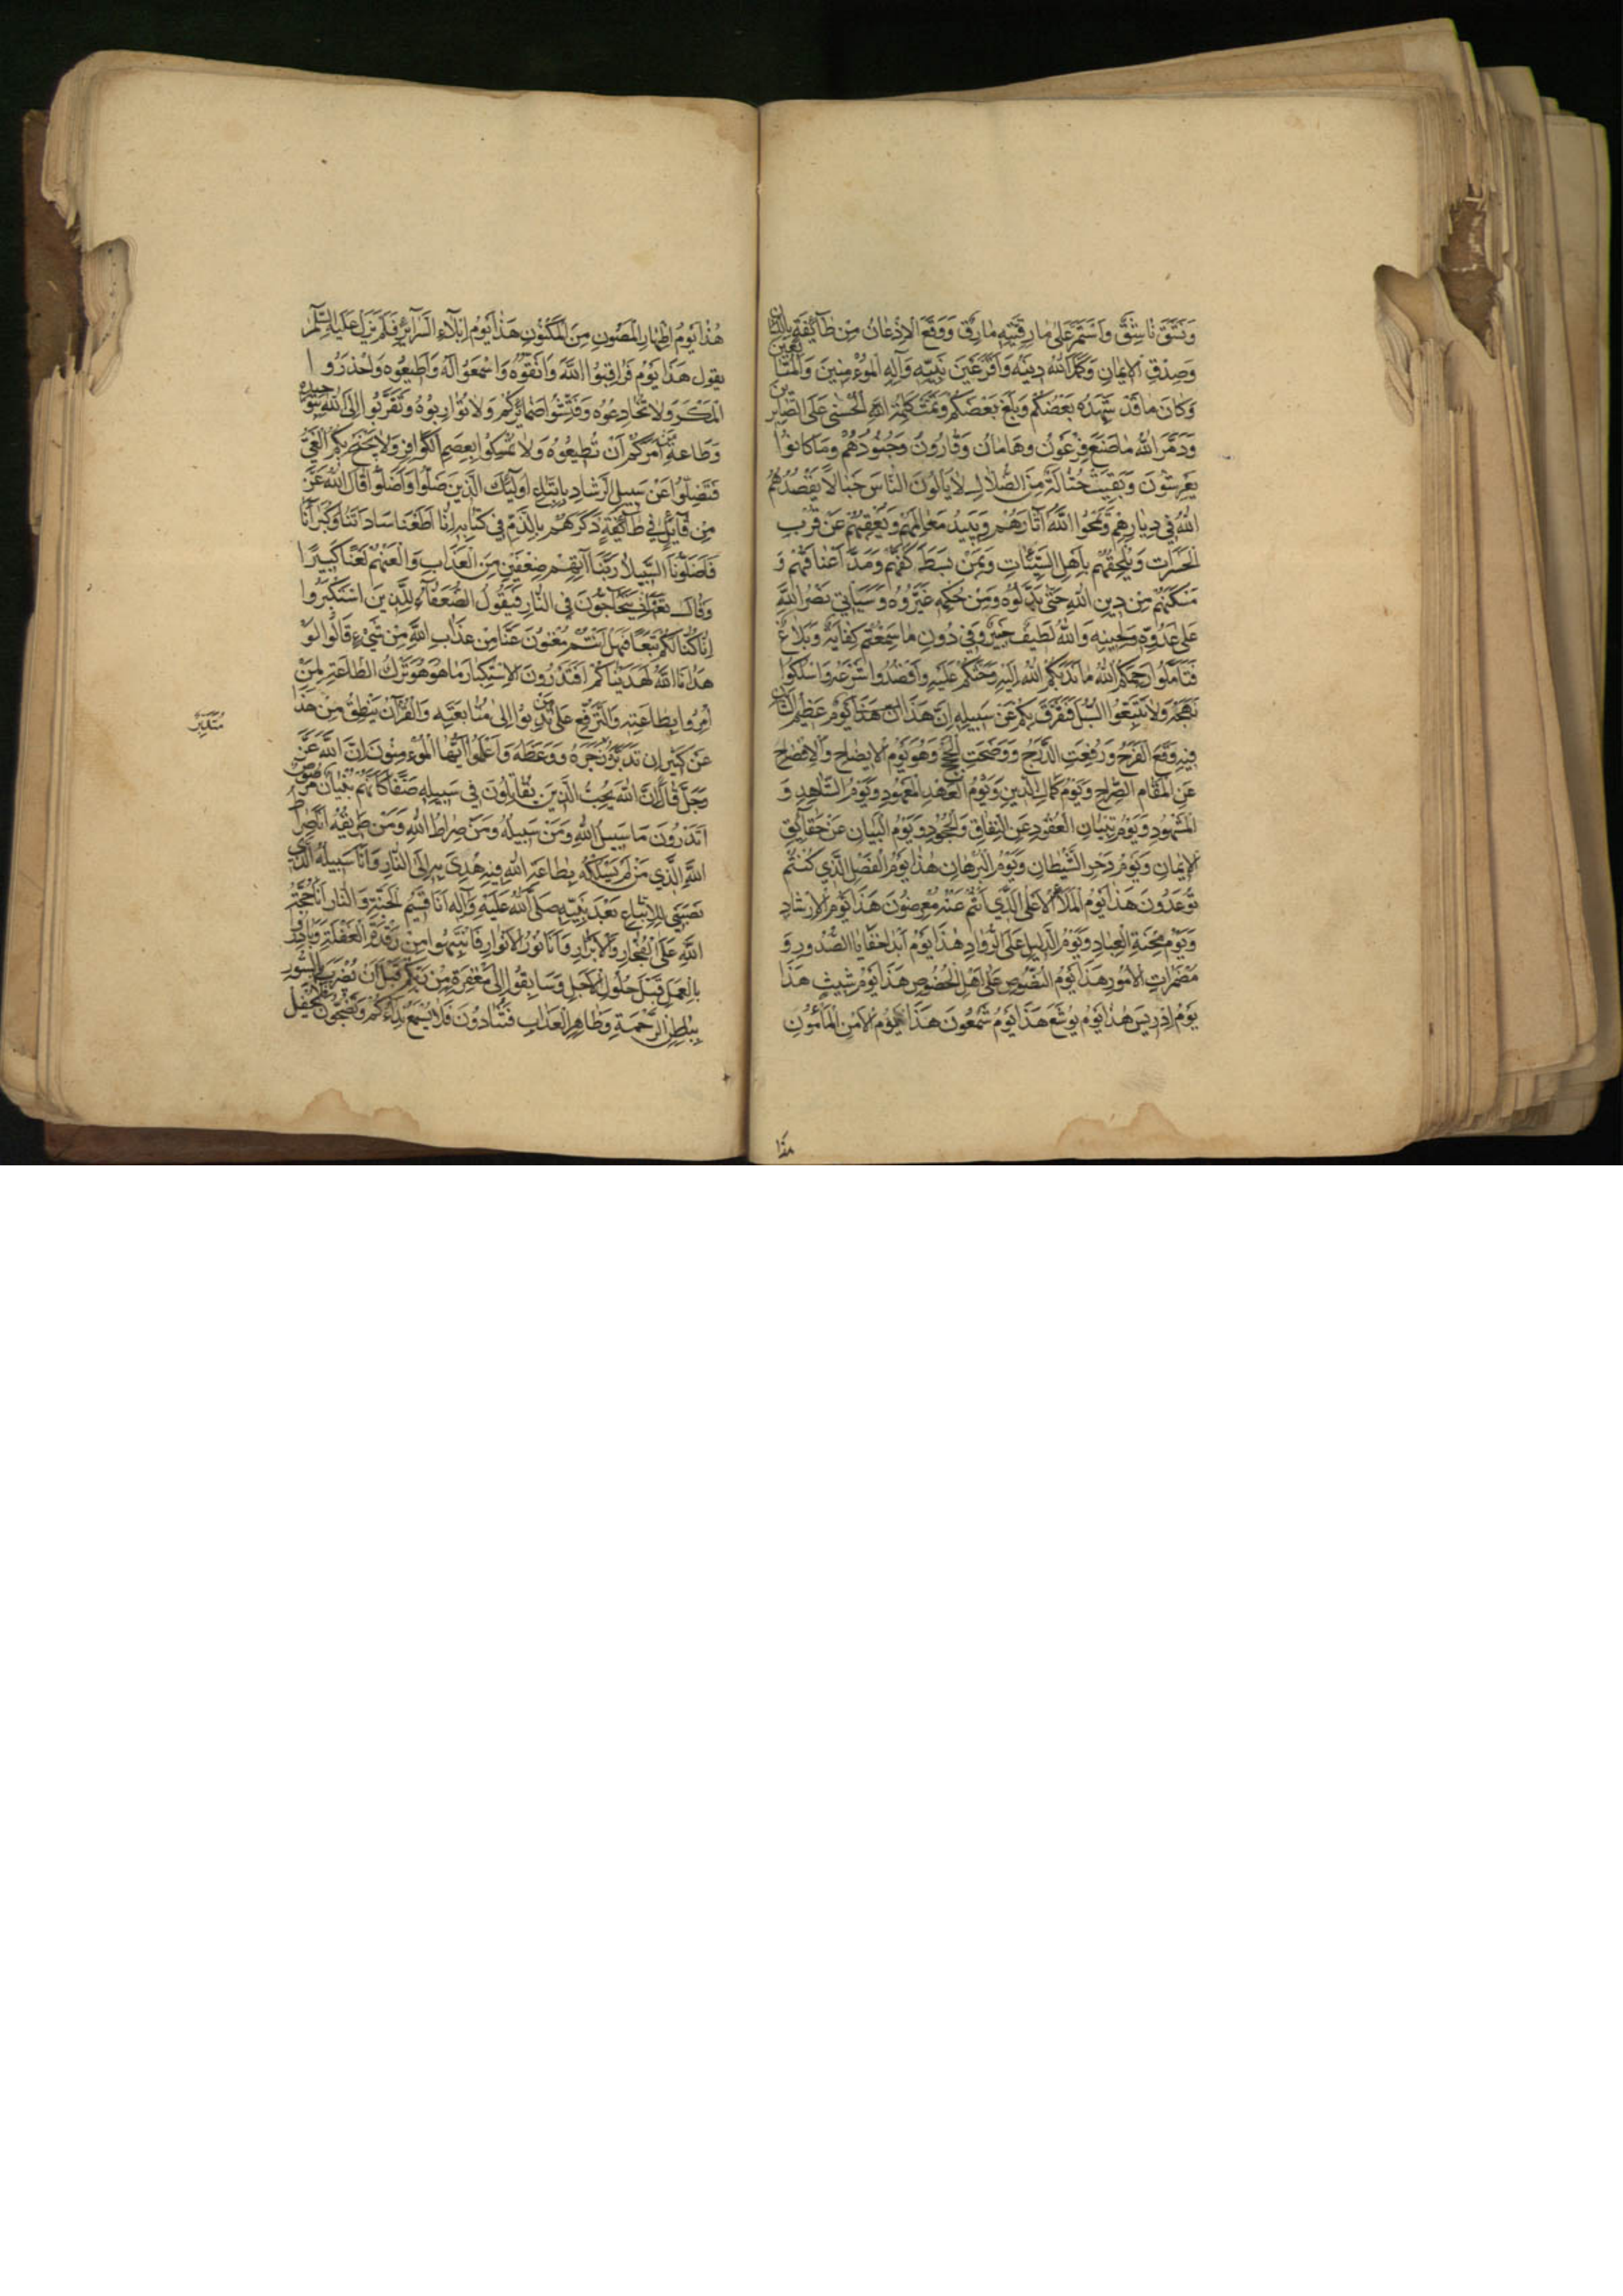 وَنَشَقَ نَاشِقٌ وَاسْتَمَرَّ عَلَى مَارِقِيَّتِهِ مَارِقٌ وَوَقَعَ الْاِذْعَانُ مِنْ طَائِفَةٍ بِاللِّسَانِ
وَصِدْقِ الْاِيمَانِ وَكَمَّلَ اللّٰهُ دِينَهُ وَاَقَرَّ عَيْنَ نَبِيِّهِ وَآلِهِ الْمُؤْمِنِينَ وَالْمُتَابِعِينَ
وَكَانَ مَا قَدْ شَهِدَهُ بَعْضُكُمْ وَبَلَغَ بَعْضَكُمْ وَتَمَّتْ كَلِمَةُ اللّٰهِ الْحُسْنٰى عَلَى الصَّابِرِينَ
وَدَمَّرَ اللّٰهُ مَا صَنَعَ فِرْعَوْنُ وَهَامَانُ وَقَارُونُ وَجُنُودُهُمْ وَمَا كَانُوا
يَعْرِشُونَ وَبَقِيَتْ حُثَالَةٌ مِنَ الضُّلَّالِ لَا يَأْلُونَ النَّاسَ خَبَالًا يَقْصُدُهُمُ
اللّٰهُ فِي دِيَارِهِمْ وَيَمْحُوا اللّٰهُ آثَارَهُمْ وَيُبِيدُ مَعَالِمَهُمْ وَيُعْقِبُهُمْ عَنْ قُرْبٍ
الْحَسَرَاتِ وَيُلْحِقُهُمْ بِاَهْلِ السَّيِّئَاتِ وَبِمَنْ بَسَطَ كَفَّهُمْ وَمَدَّ اَعْنَاقَهُمْ وَ
مَكَّنَهُمْ مِنْ دِينِ اللّٰهِ حَتّٰى بَدَّلُوهُ وَمِنْ حُكْمِهِ غَيَّرُوهُ وَسَيَأْتِي نَصْرُ اللّٰهِ
عَلٰى عَدُوِّهِ وَلِحِينِهِ وَاللّٰهُ لَطِيفٌ خَبِيرٌ وَفِي دُونِ مَا سَمِعْتُمْ كِفَايَةٌ وَبَلَاغٌ
فَتَاَمَّلُوا رَحِمَكُمُ اللّٰهُ مَا نَدَبَكُمُ اللّٰهُ اِلَيْهِ وَحَثَّكُمْ عَلَيْهِ وَاقْصُدُوا شَرْعَهُ وَاسْلُكُوا
نَهْجَهُ وَلَا تَتَّبِعُوا السُّبُلَ فَتَفَرَّقَ بِكُمْ عَنْ سَبِيلِهِ اِنَّ هَذَا يَوْمٌ عَظِيمُ الشَّاْنِ
فِيهِ وَقَعَ الْفَرَجُ وَرُفِعَتِ الدَّرَجُ وَوَضَحَتِ الْحُجَجُ وَهُوَ يَوْمُ الْاِيضَاحِ وَالْاِفْصَاحِ
عَنِ الْمَقَامِ الصُّرَاحِ وَيَوْمُ كَمَالِ الدِّينِ وَيَوْمُ الْعَهْدِ الْمَعْهُودِ وَيَوْمُ الشَّاهِدِ وَ
الْمَشْهُودِ وَيَوْمُ تِبْيَانِ الْعُقُودِ عَنِ النِّفَاقِ وَالْجُحُودِ وَيَوْمُ الْبَيَانِ عَنْ حَقَائِقِ
الْاِيمَانِ وَيَوْمُ دَحْرِ الشَّيْطَانِ وَيَوْمُ الْبُرْهَانِ هٰذَا يَوْمُ الْفَصْلِ الَّذِي كُنْتُمْ
تُوعَدُونَ هَذَا يَوْمُ الْمَلَاِ الْاَعْلَى الَّذِي اَنْتُمْ عَنْهُ مُعْرِضُونَ هَذَا يَوْمُ الْاِرْشَادِ
وَيَوْمُ مِحْنَةِ الْعِبَادِ وَيَوْمُ الدَّلِيلِ عَلَى الرُّوَّادِ هٰذَا يَوْمُ اَبْدَا خَفَايَا الصُّدُورِ وَ
مُضْمَرَاتِ الْاُمُورِ هَذَا يَوْمُ النُّصُوصِ عَلٰى اَهْلِ الْخُصُوصِ هَذَا يَوْمُ شِيثٍ هَذَا
يَوْمُ اِدْرِيسَ هٰذَا يَوْمُ يُوشَعَ هَذَا يَوْمُ شَمْعُونَ هَذَا يَوْمُ الْاَمْنِ الْمَأْمُونِ
هذا
هٰذَا يَوْمُ اِظْهَارِ الْمَصُونِ مِنَ الْمَكْنُونِ هَذَا يَوْمُ اِبْلَاءِ السَّرَائِرِ فَلَمْ يَزَلْ عَلَيْهِ السَّلَامُ
يَقُولُ هَذَا يَوْمٌ فَرَاقِبُوا اللّٰهَ وَاتَّقُوهُ وَاسْمَعُوا لَهُ وَاَطِيعُوهُ وَاحْذَرُوا
الْمَكْرَ وَلَا تُخَادِعُوهُ وَفَتِّشُوا ضَمَائِرَكُمْ وَلَا تُوَارِبُوهُ وَتَقَرَّبُوا اِلَى اللّٰهِ بِتَوْحِيدِهِ
وَطَاعَةِ مَنْ اَمَرَكُمْ اَنْ تُطِيعُوهُ وَلَا تُمْسِكُوا بِعِصَمِ الْكَوَافِرِ وَلَا يَجْنَحْ بِكُمُ الْغَيُّ
فَتَضِلُّوا عَنْ سَبِيلِ الرَّشَادِ بِاتِّبَاعِ اُولٰئِكَ الَّذِينَ ضَلُّوا وَاَضَلُّوا قَالَ اللّٰهُ عَزَّ
مِنْ قَائِلٍ فِي طَائِفَةٍ ذَكَرَهُمْ بِالذَّمِّ فِي كِتَابِهِ اِنَّا اَطَعْنَا سَادَاتَنَا وَكُبَرَاءَنَا
فَاَضَلُّونَا السَّبِيلَا رَبَّنَا آتِهِمْ ضِعْفَيْنِ مِنَ الْعَذَابِ وَالْعَنْهُمْ لَعْنًا كَبِيرًا
وَقَالَ تَعَالٰى وَاِذْ يَتَحَاجُّونَ فِي النَّارِ فَيَقُولُ الضُّعَفَاءُ لِلَّذِينَ اسْتَكْبَرُوا
اِنَّا كُنَّا لَكُمْ تَبَعًا فَهَلْ اَنْتُمْ مُغْنُونَ عَنَّا مِنْ عَذَابِ اللّٰهِ مِنْ شَيْءٍ قَالُوا لَوْ
هَدَانَا اللّٰهُ لَهَدَيْنَاكُمْ اَفَتَدْرُونَ الْاِسْتِكْبَارَ مَا هُوَ هُوَ تَرْكُ الطَّاعَةِ لِمَنْ
اُمِرُوا بِطَاعَتِهِ وَالتَّرَفُّعُ عَلٰى مَنْ نُدِبُوا اِلٰى مُتَابَعَتِهِ وَالْقُرْآنُ يَنْطِقُ مِنْ هَذَا
عَنْ كَثِيرٍ اِنْ تَدَبَّرَهُ زَجَرَهُ وَوَعَظَهُ وَاعْلَمُوا اَيُّهَا الْمُؤْمِنُونَ اِنَّ اللّٰهَ عَزَّ
مُتَدَبِّرٌ
وَجَلَّ قَالَ اِنَّ اللّٰهَ يُحِبُّ الَّذِينَ يُقَاتِلُونَ فِي سَبِيلِهِ صَفًّا كَاَنَّهُمْ بُنْيَانٌ مَرْصُوصٌ
اَتَدْرُونَ مَا سَبِيلُ اللّٰهِ وَمَنْ سَبِيلُهُ وَمَنْ صِرَاطُ اللّٰهِ وَمَنْ طَرِيقُهُ اَنَا صِرَاطُ
اللّٰهِ الَّذِي مَنْ لَمْ يَسْلُكْهُ بِطَاعَةِ اللّٰهِ فِيهِ هُدِيَ بِهِ اِلَى النَّارِ وَاَنَا سَبِيلُهُ الَّذِي
نَصَبَنِي لِلْاِتِّبَاعِ بَعْدَ نَبِيِّهِ صَلَّى اللّٰهُ عَلَيْهِ وَآلِهِ اَنَا قَسِيمُ الْجَنَّةِ وَالنَّارِ اَنَا حُجَّةُ
اللّٰهِ عَلَى الْفُجَّارِ وَالْاَبْرَارِ وَاَنَا نُورُ الْاَنْوَارِ فَانْتَبِهُوا مِنْ رَقْدَةِ الْغَفْلَةِ وَبَادِرُوا
بِالْعَمَلِ قَبْلَ حُلُولِ الْاَجَلِ وَسَابِقُوا اِلٰى مَغْفِرَةٍ مِنْ رَبِّكُمْ قَبْلَ اَنْ يُضْرَبَ بِالسُّورِ
بِبَاطِنِ الرَّحْمَةِ وَظَاهِرِ الْعَذَابِ فَتُنَادُونَ فَلَا يُسْمَعُ نِدَاءُكُمْ وَتَضِجُّونَ فَلَا يُحْفَلُ